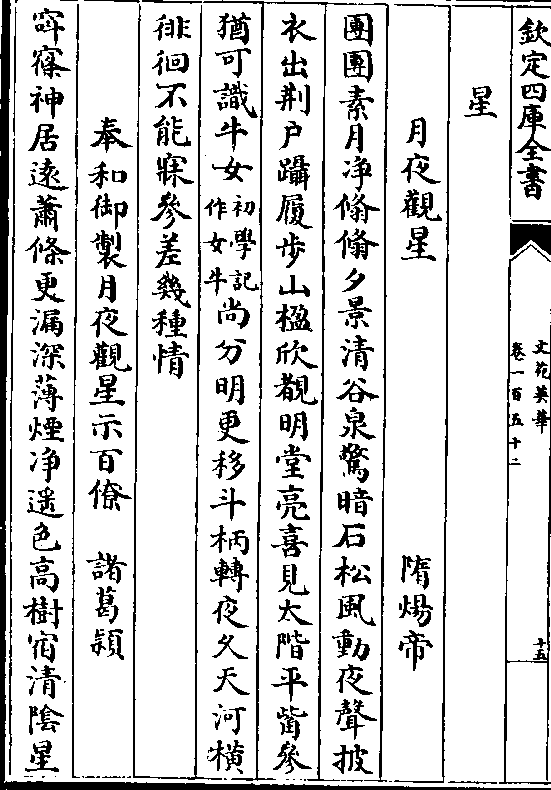 欽定四庫全書
文苑英華
卷一百五十二
十五
星
月夜觀星 隋煬帝
團團素月净翛翛夕景清谷泉驚暗石松風動夜聲披
衣出荆户躡履步山楹欣覩明堂亮喜見太階平觜參
猶可識牛女初學記作女牛尚分明更移斗柄轉夜久天河横
徘徊不能寐參差幾種情
奉和御製月夜觀星示百僚 諸葛穎
窙寥神居逺蕭條更漏深薄煙净遥色高樹宿清陰星